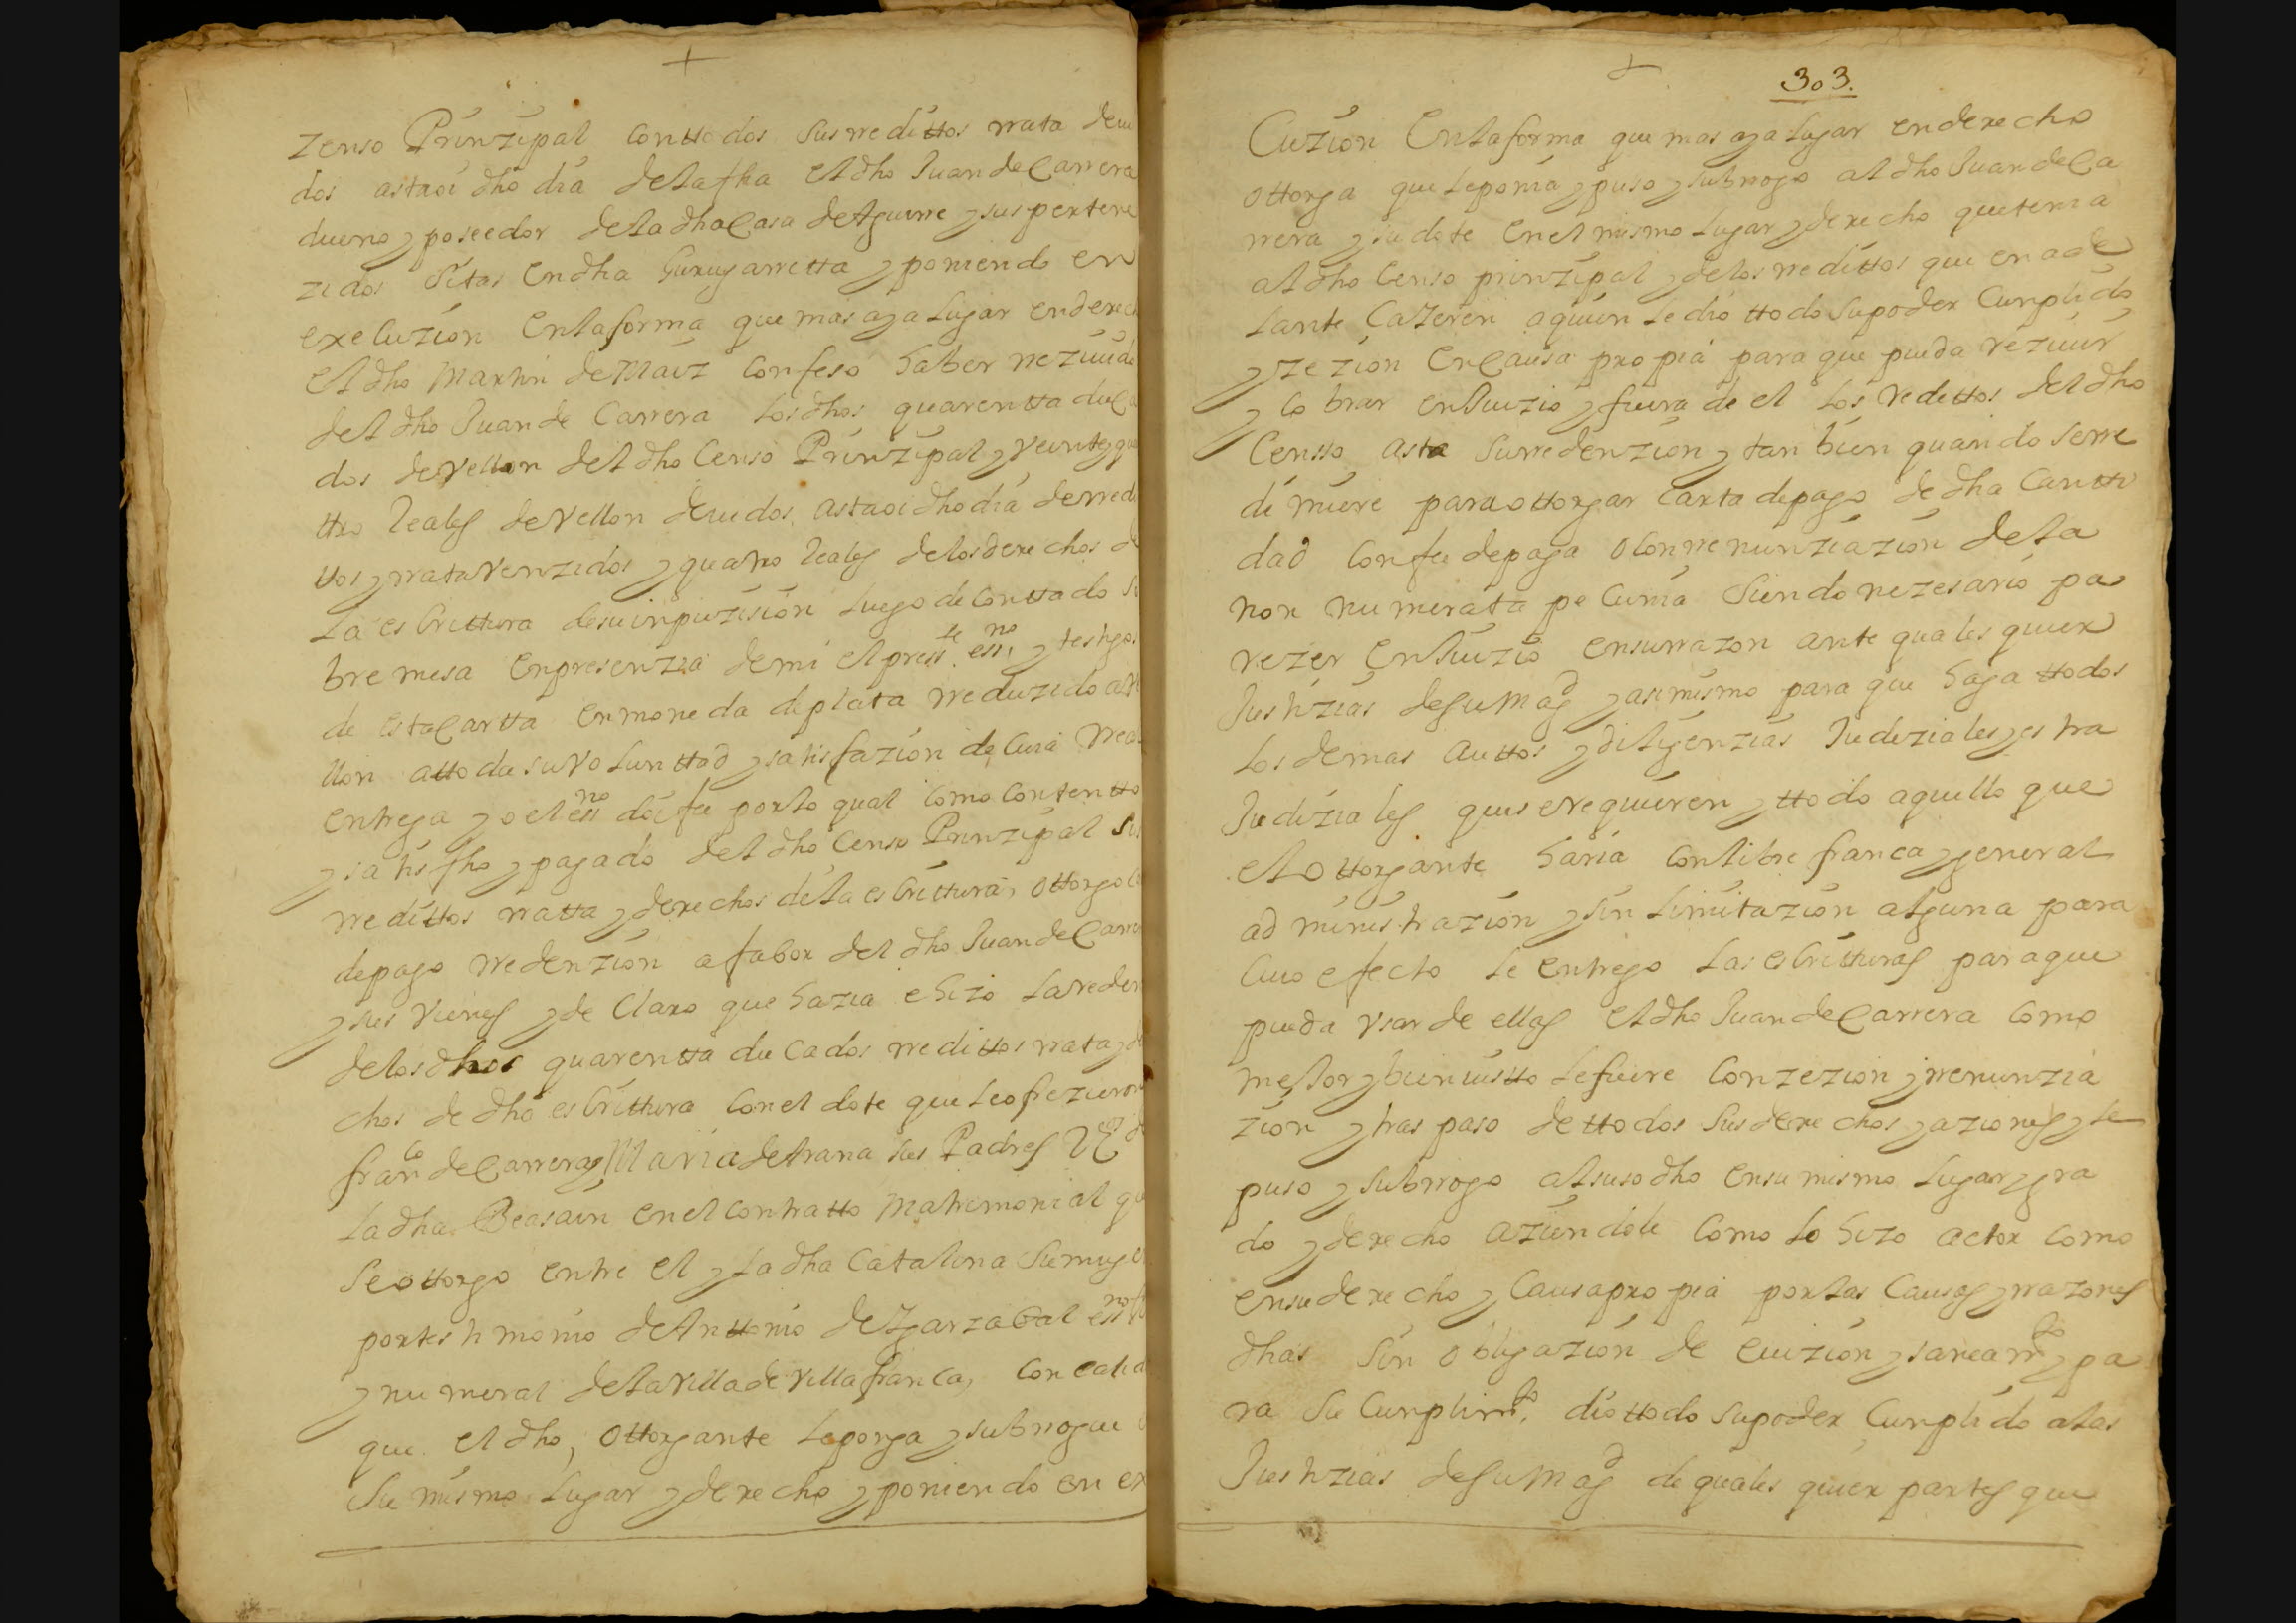 zenso Prinzipal con ttodos sus rredittos rrata deui
dos asta oi dho dia de la fha el dho Juan de Carrera
dueno y poseedor de la dha Casa de Aguirre y sus pertene
zidos sitos en dha Gurugarretta y poniendo en
execuzion en la forma que mas aya lugar en derech
el dho Martin de Maiz confeso haber rrezuido
del dho Juan de Carrera los dhos quarentta duca
dos de vellon del dho Censo Prinzipal y veinte y qua
ttro Reales de vellon deuidos asta oi dho dia de rredi
ttos y rrata venzidos y quatro Reales de los derechos de
la escrittura de su inpuzision luego de conttado so
bre mesa en presenzia de mi el press.te ess.no y testigos
de esta Cartta en moneda de plata rreduzido a ve
llon a ttoda su voluntta​d y satisfazion de cuia rrea
entrega yo el ess.no doi fee por lo qual como contentto
y satisfho y pagado del dho Censo Prinzipal sus
rredittos rratta y derechos de la escrittura, ottorgo ca
de pago rredenzion a fabor del dho Juan de Carre
y sus vienes y declaro que hazia e hizo la reden
de los dhos quarentta ducados rredittos rrata y de
chos de dha escrittura con el dote que le ofrezieron
fran.co de Carrera y Maria de Arana sus Padres V.os de
la dha Beasain en el contratto matrimonial que
se ottorgo entre el y la dha Catalina su muge
por testimonio de Anttonio de Ygarzabal ess.no
y numeral de la villa de Villafranca, con calid
que el dho, ottorgante le ponga y subrrogue
su mismo lugar y derecho y poniendo en ex
303.
Cuzion en la forma que mas aya lugar en derecho
ottorga que le ponia y puso y subrrogo al dho Juan de Ca
rrera y su dote en el mismo lugar y derecho que tenia
al dho Censo prinzipal y de los rredittos que en ade
lante Cazeren a quien le dio ttodo su poder Cunplido
y zezion en Causa propia para que pueda rezuir
y cobrar en Juizio y fuera de el los redittos del dho
Censso asta su rredenzion y tanbien quando se rre
dimiere para ottorgar carta de pago de dha Cantti
dad con fee de paga o con rrenunziazion de la
non numerata pecunia siendo nezesario pa
rezer en Juizio en su rrazon ante quales quier
Justizias de su Mag.d y asimismo para que haga ttodos
los demas auttos y diligenzias Judiziales y estra
Judiziales que se requieren y ttodo aquello que
el ottorgante haria con libre franca y general
administrazion y sin limitazion alguna para
cuio efecto le entrego las escritturas para que
pueda vsar de ellas el dho Juan de Carrera como
mejor y bien uistto le fuere con zezion y rrenunzia
zion y traspaso de ttodos sus derechos y aziones y le
puso y subrrogo al susodho en su mismo lugar y gra
do y derecho aziendole como lo hizo actor como
en su derecho y Causa propia por las Causas y rrazones
dhas sin obligazion de euizion y saneam.to y pa
ra su Cunplim.to dio ttodo su poder Cunplido a las
Justizias de su Mag.d de quales quier partes que